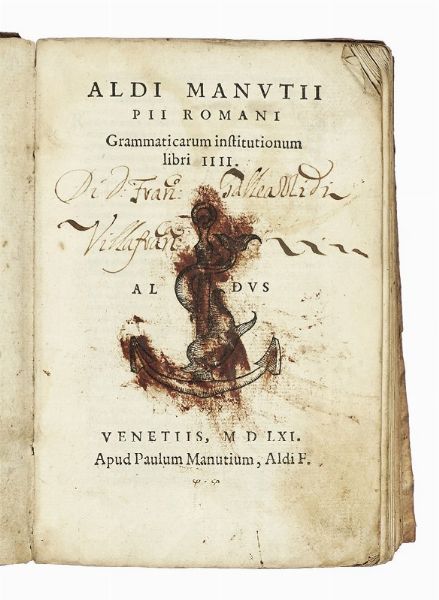 ALDI MANVTII
PII ROMANI
Grammaticarum institutionum
libri IIII.
Di D. Fran.
Villafran.
AL DVS
VENETIIS, M D LXI.
Apud Paulum Manutium, Aldi F.